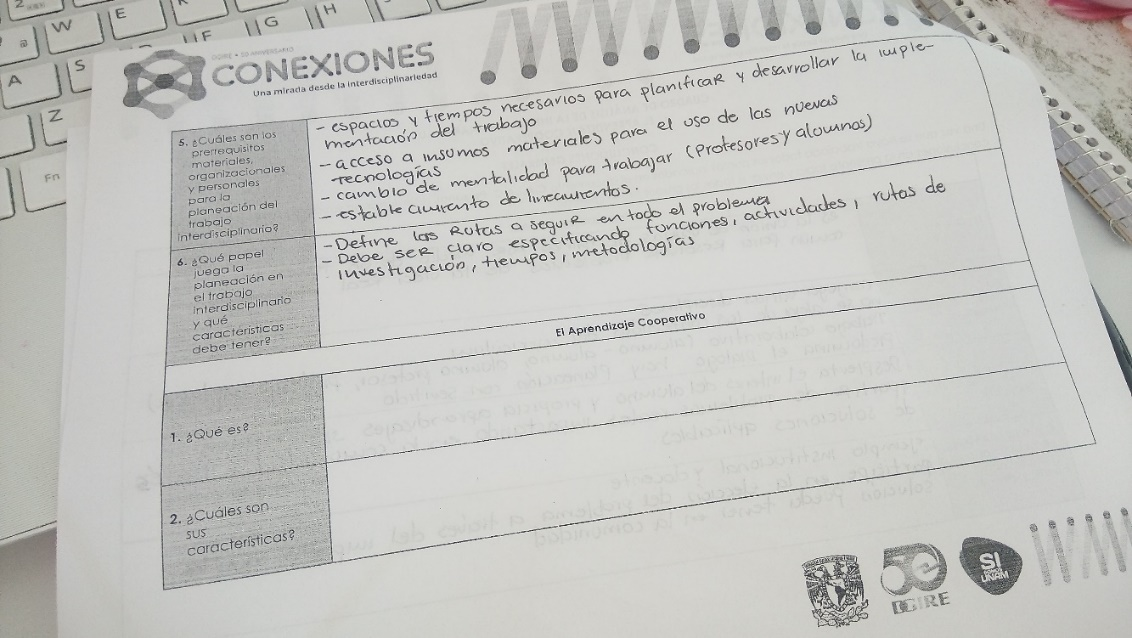 DGIRE • 50 ANIVERSARIO
CONEXIONES
Una mirada desde la interdisciplinariedad
5. ¿Cuáles son los
prerrequisitos
materiales,
organizacionales
y personales
para la
planeación del
trabajo
interdisciplinario?
- espacios y tiempos necesarios para planificar y desarrollar la imple-
mentación del trabajo
- acceso a insumos materiales para el uso de las nuevas
tecnologías
- cambio de mentalidad para trabajar (Profesores y alumnos)
- establecimiento de lineamientos.
6. ¿Qué papel
juega la
planeación en
el trabajo
interdisciplinario
y qué
características
debe tener?
- Define las Rutas a seguir en todo el problema
- Debe ser claro especificando funciones, actividades, rutas de
investigación, tiempos, metodologías
El Aprendizaje Cooperativo
1. ¿Qué es?
2. ¿Cuáles son
sus
características?
DGIRE
SI
UNAM
Z
W
E
R
F
G
H
A
S
Z
Fn